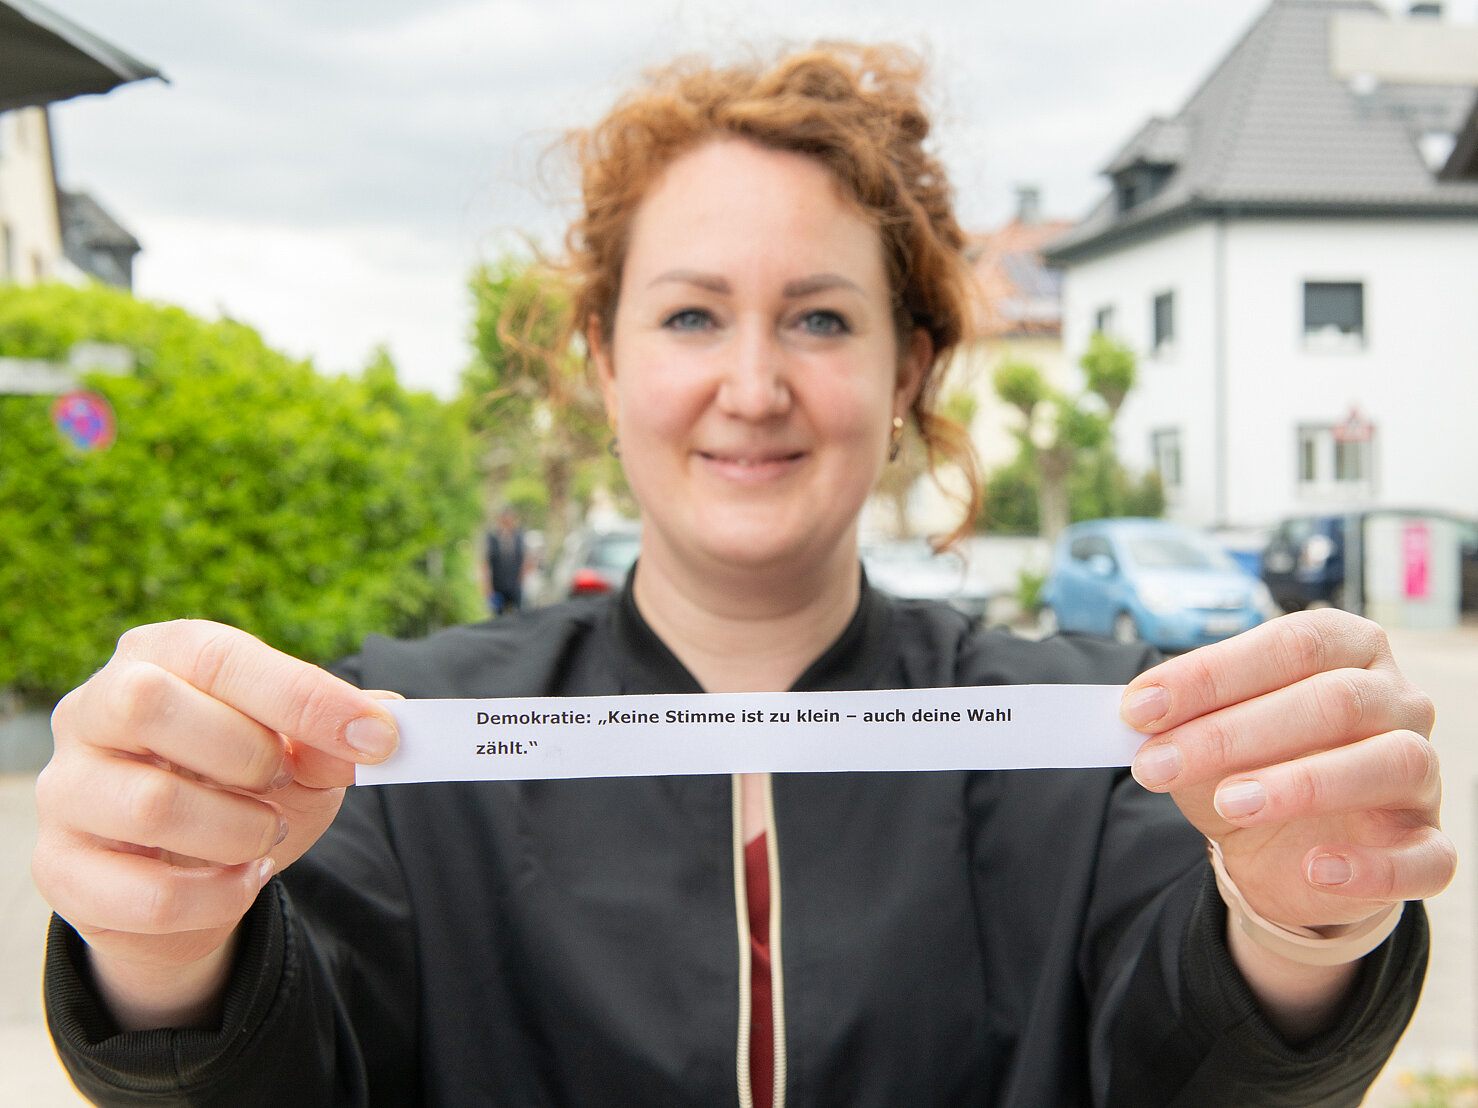 Demokratie: „Keine Stimme ist zu klein – auch deine Wahl
zählt.“